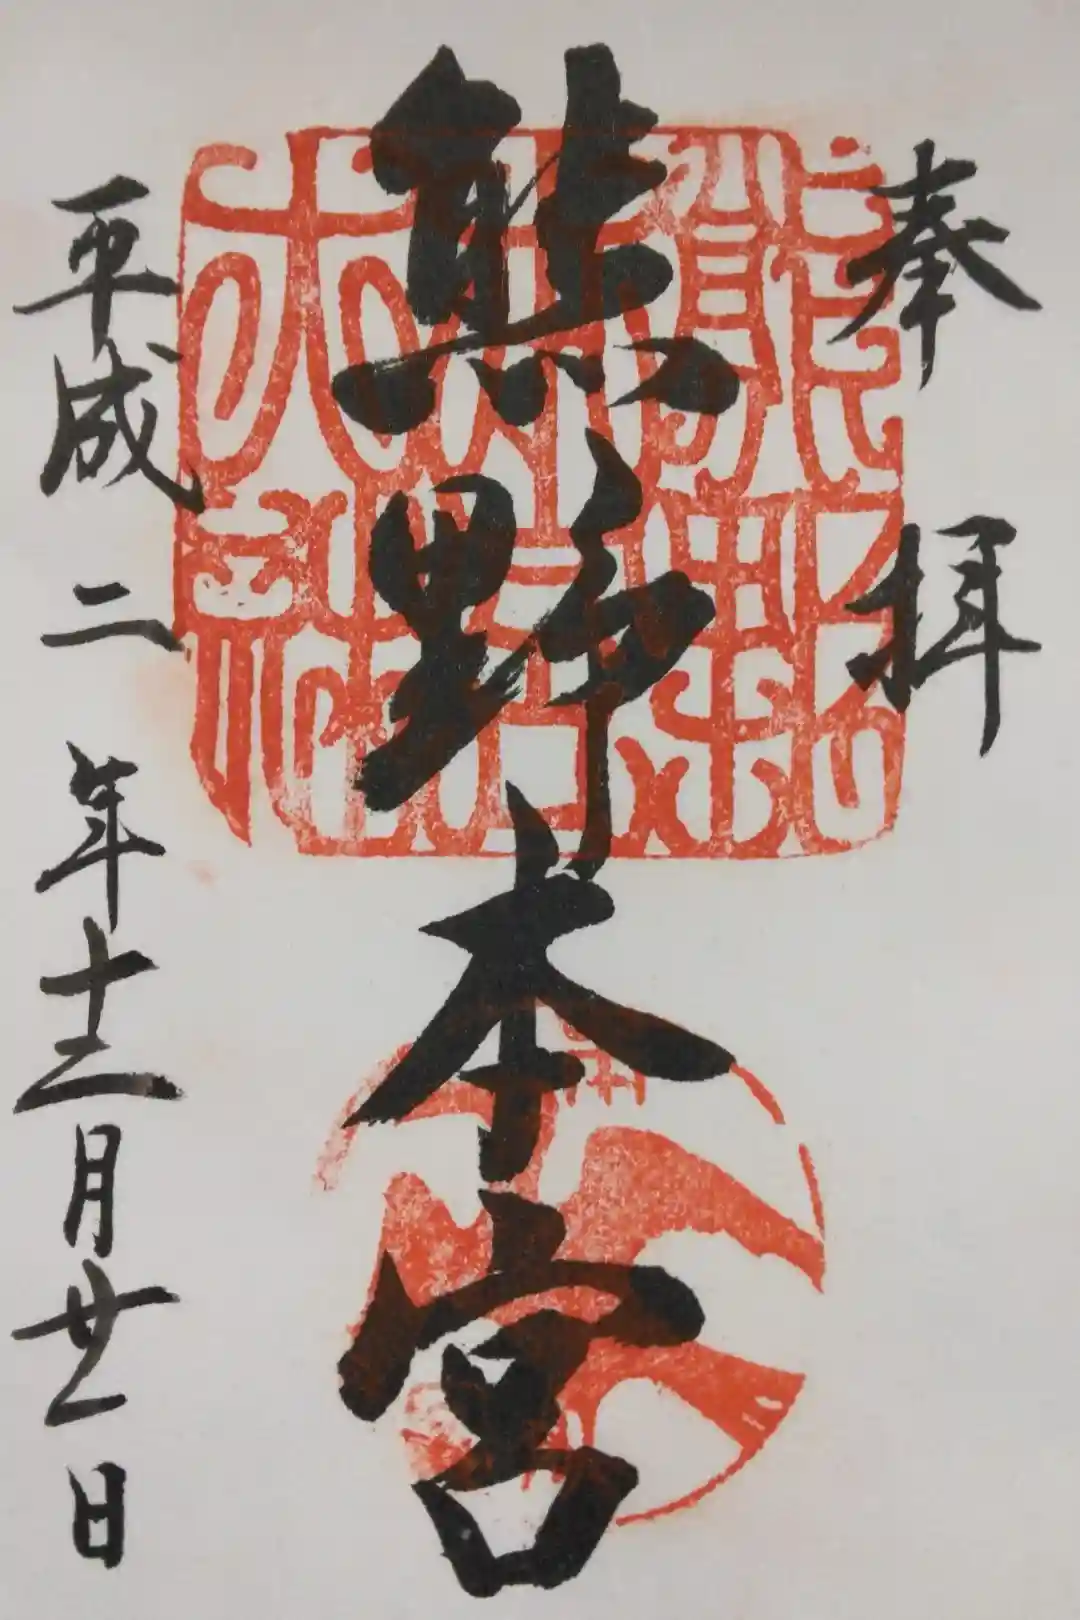 奉拝
熊野本宮
平成二年十二月廿一日